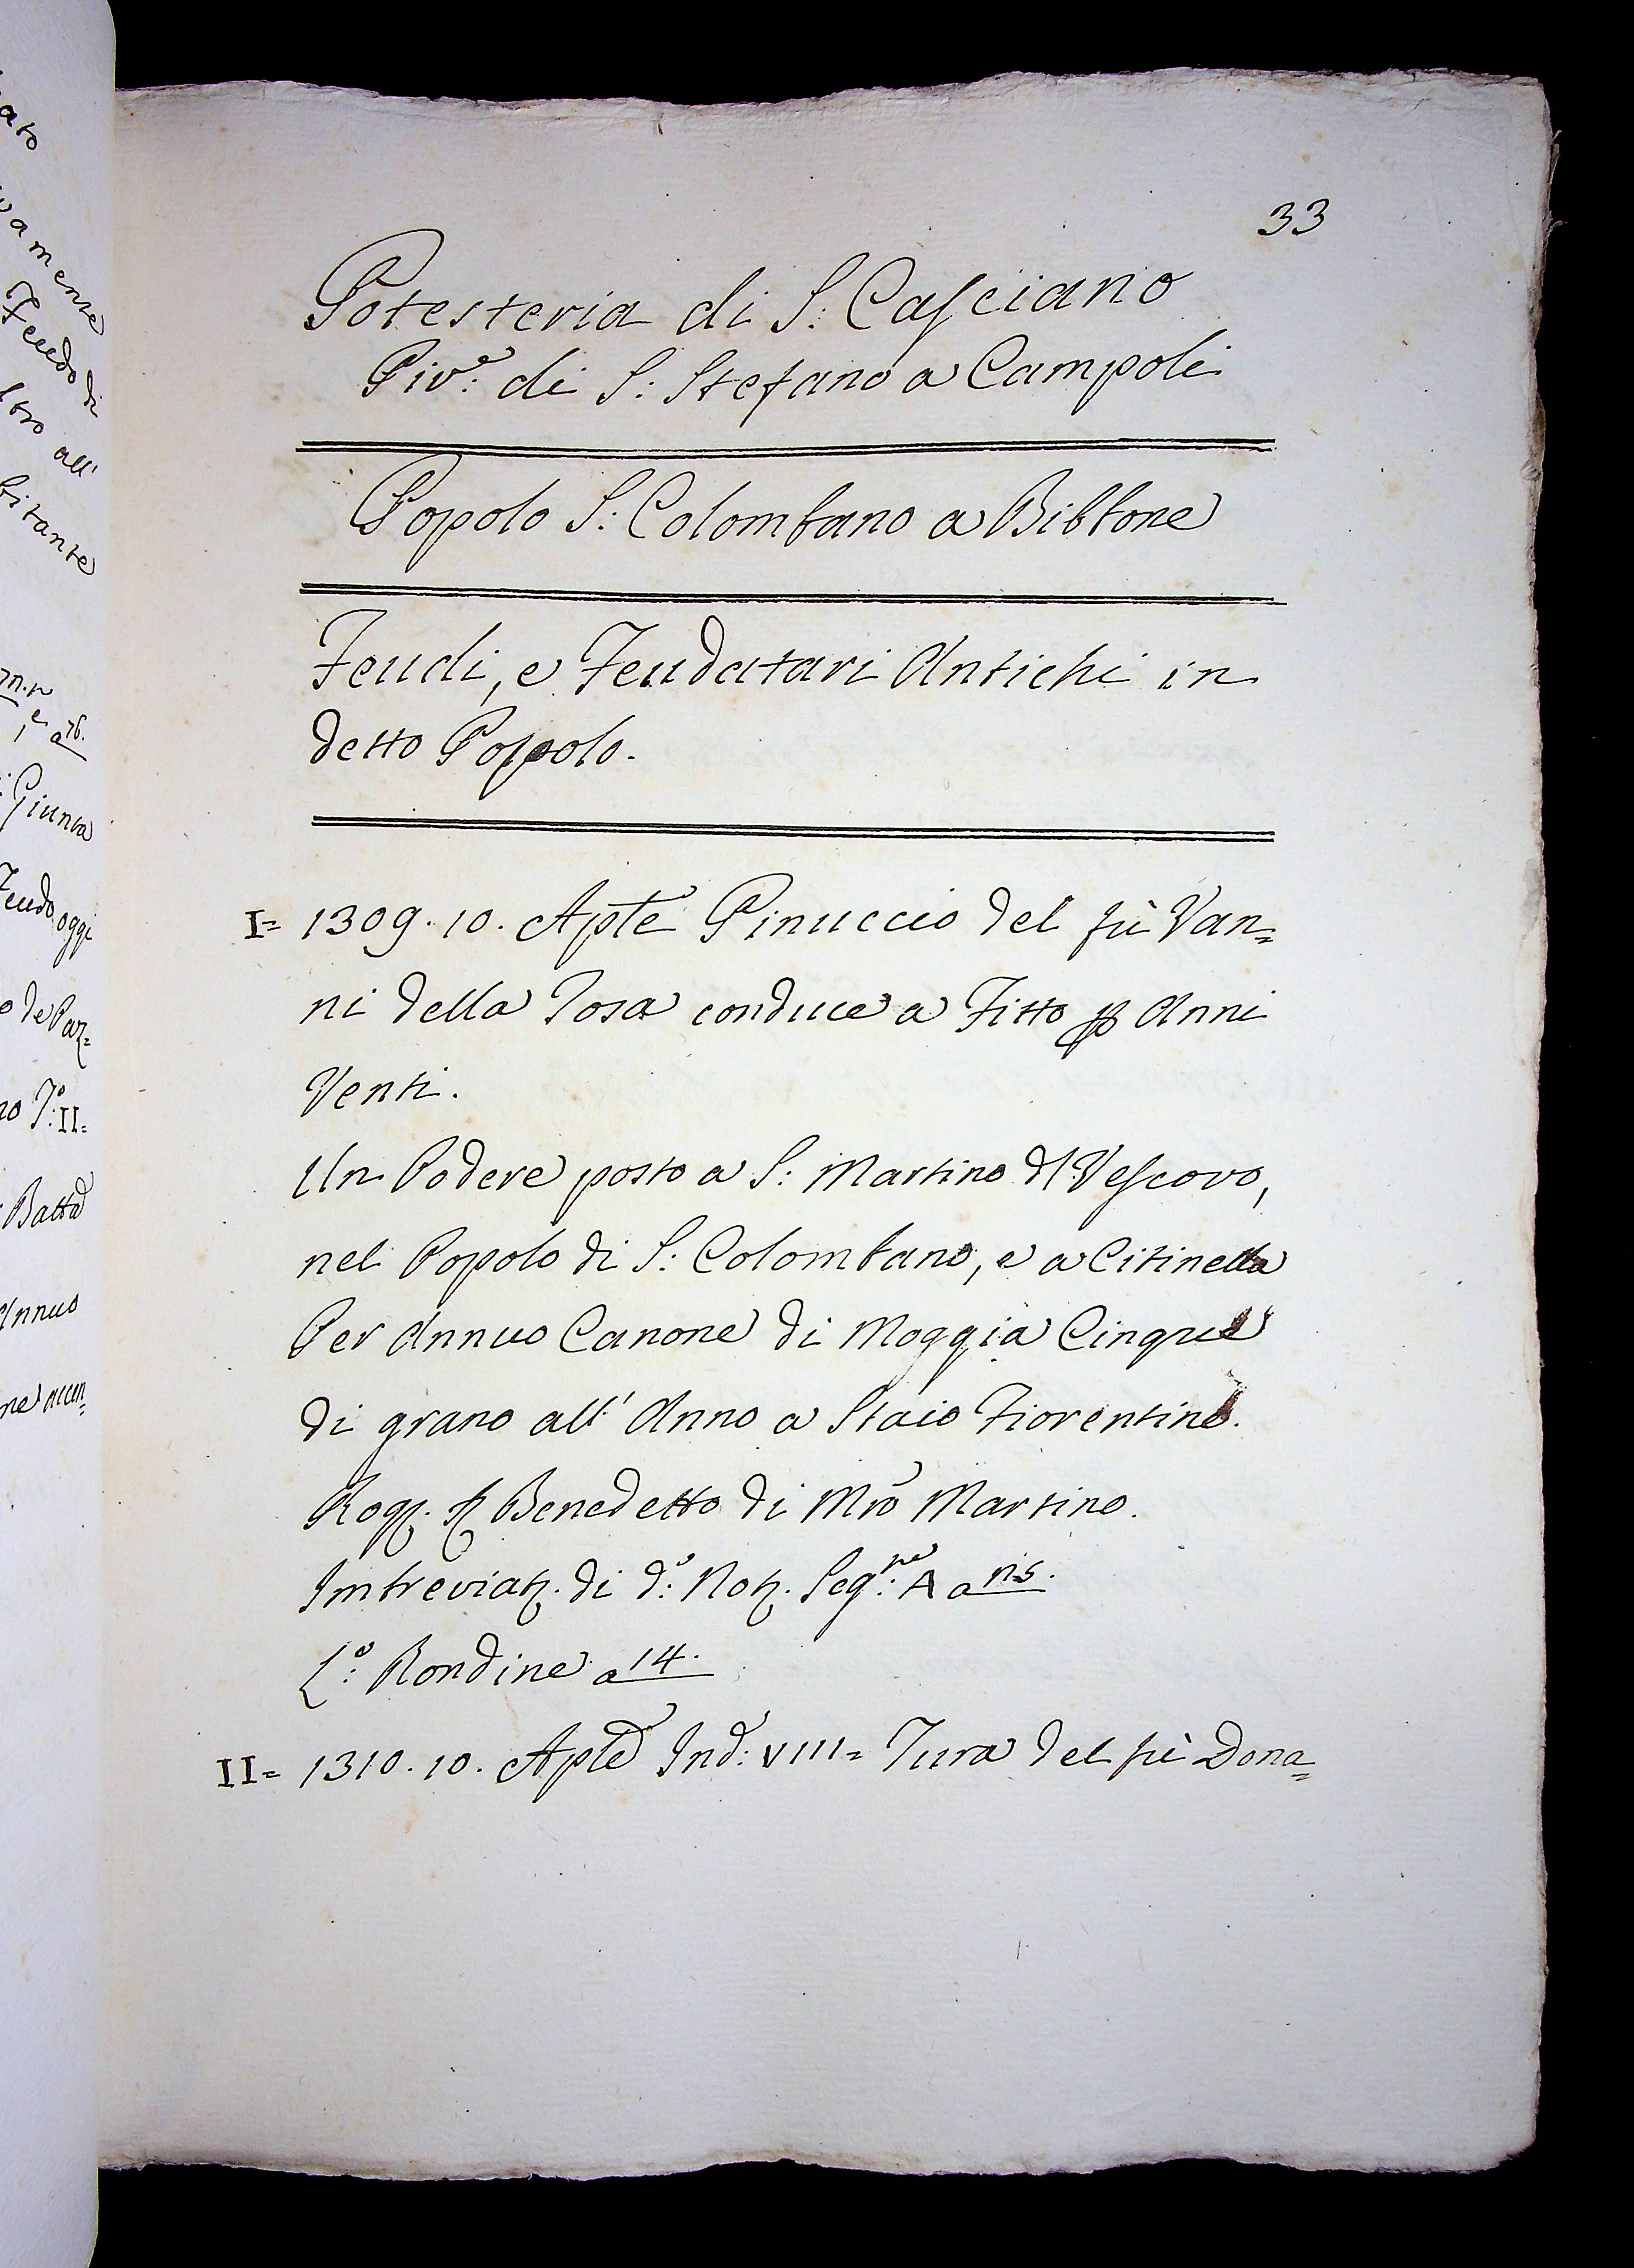 33
Potesteria di S: Casciano
Piv.e di S: Stefano a Campoli
Popolo S: Colombano a Bibbone
Feudi, e Feudatari Antichi in
detto Popolo.
I= 1309. 10. Aple Pinuccio del fù Van=
ni della Tosa conduce a Fitto p Anni
Venti.
Un Podere posto a S: Martino dl Vescovo,
nel Popolo di S: Colombano, e a Citinella
Per Annuo Canone di Moggia Cinque
di grano all' Anno a Staio Fiorentino.
Rog. Benedetto di Mrõ Martino.
Imbreviaz. di d.o Not. Seg.re A a n.5.
L.o Rondine a 14.
II= 1310. 10. Aple Ind: VIII= Tura del fù Dona=
ato
vamente
Feudo di
ltro all'
bitante
e a 76.
Giunta
Feudo oggi
o de Paz=
no T.o II=
Batta
Annuo